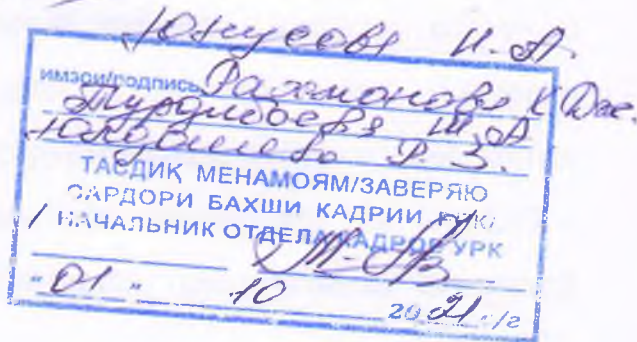 Юнусова И. А.
имзои/подпись Рахмонова К. Дж.
Турдибоева Ш. А
Р. З.
ТАСДИҚ МЕНАМОЯМ/ЗАВЕРЯЮ
САРДОРИ БАХШИ КАДРИИ
НАЧАЛЬНИК ОТДЕЛА КАДРОВ УРК
"01" 10 2021 с/г